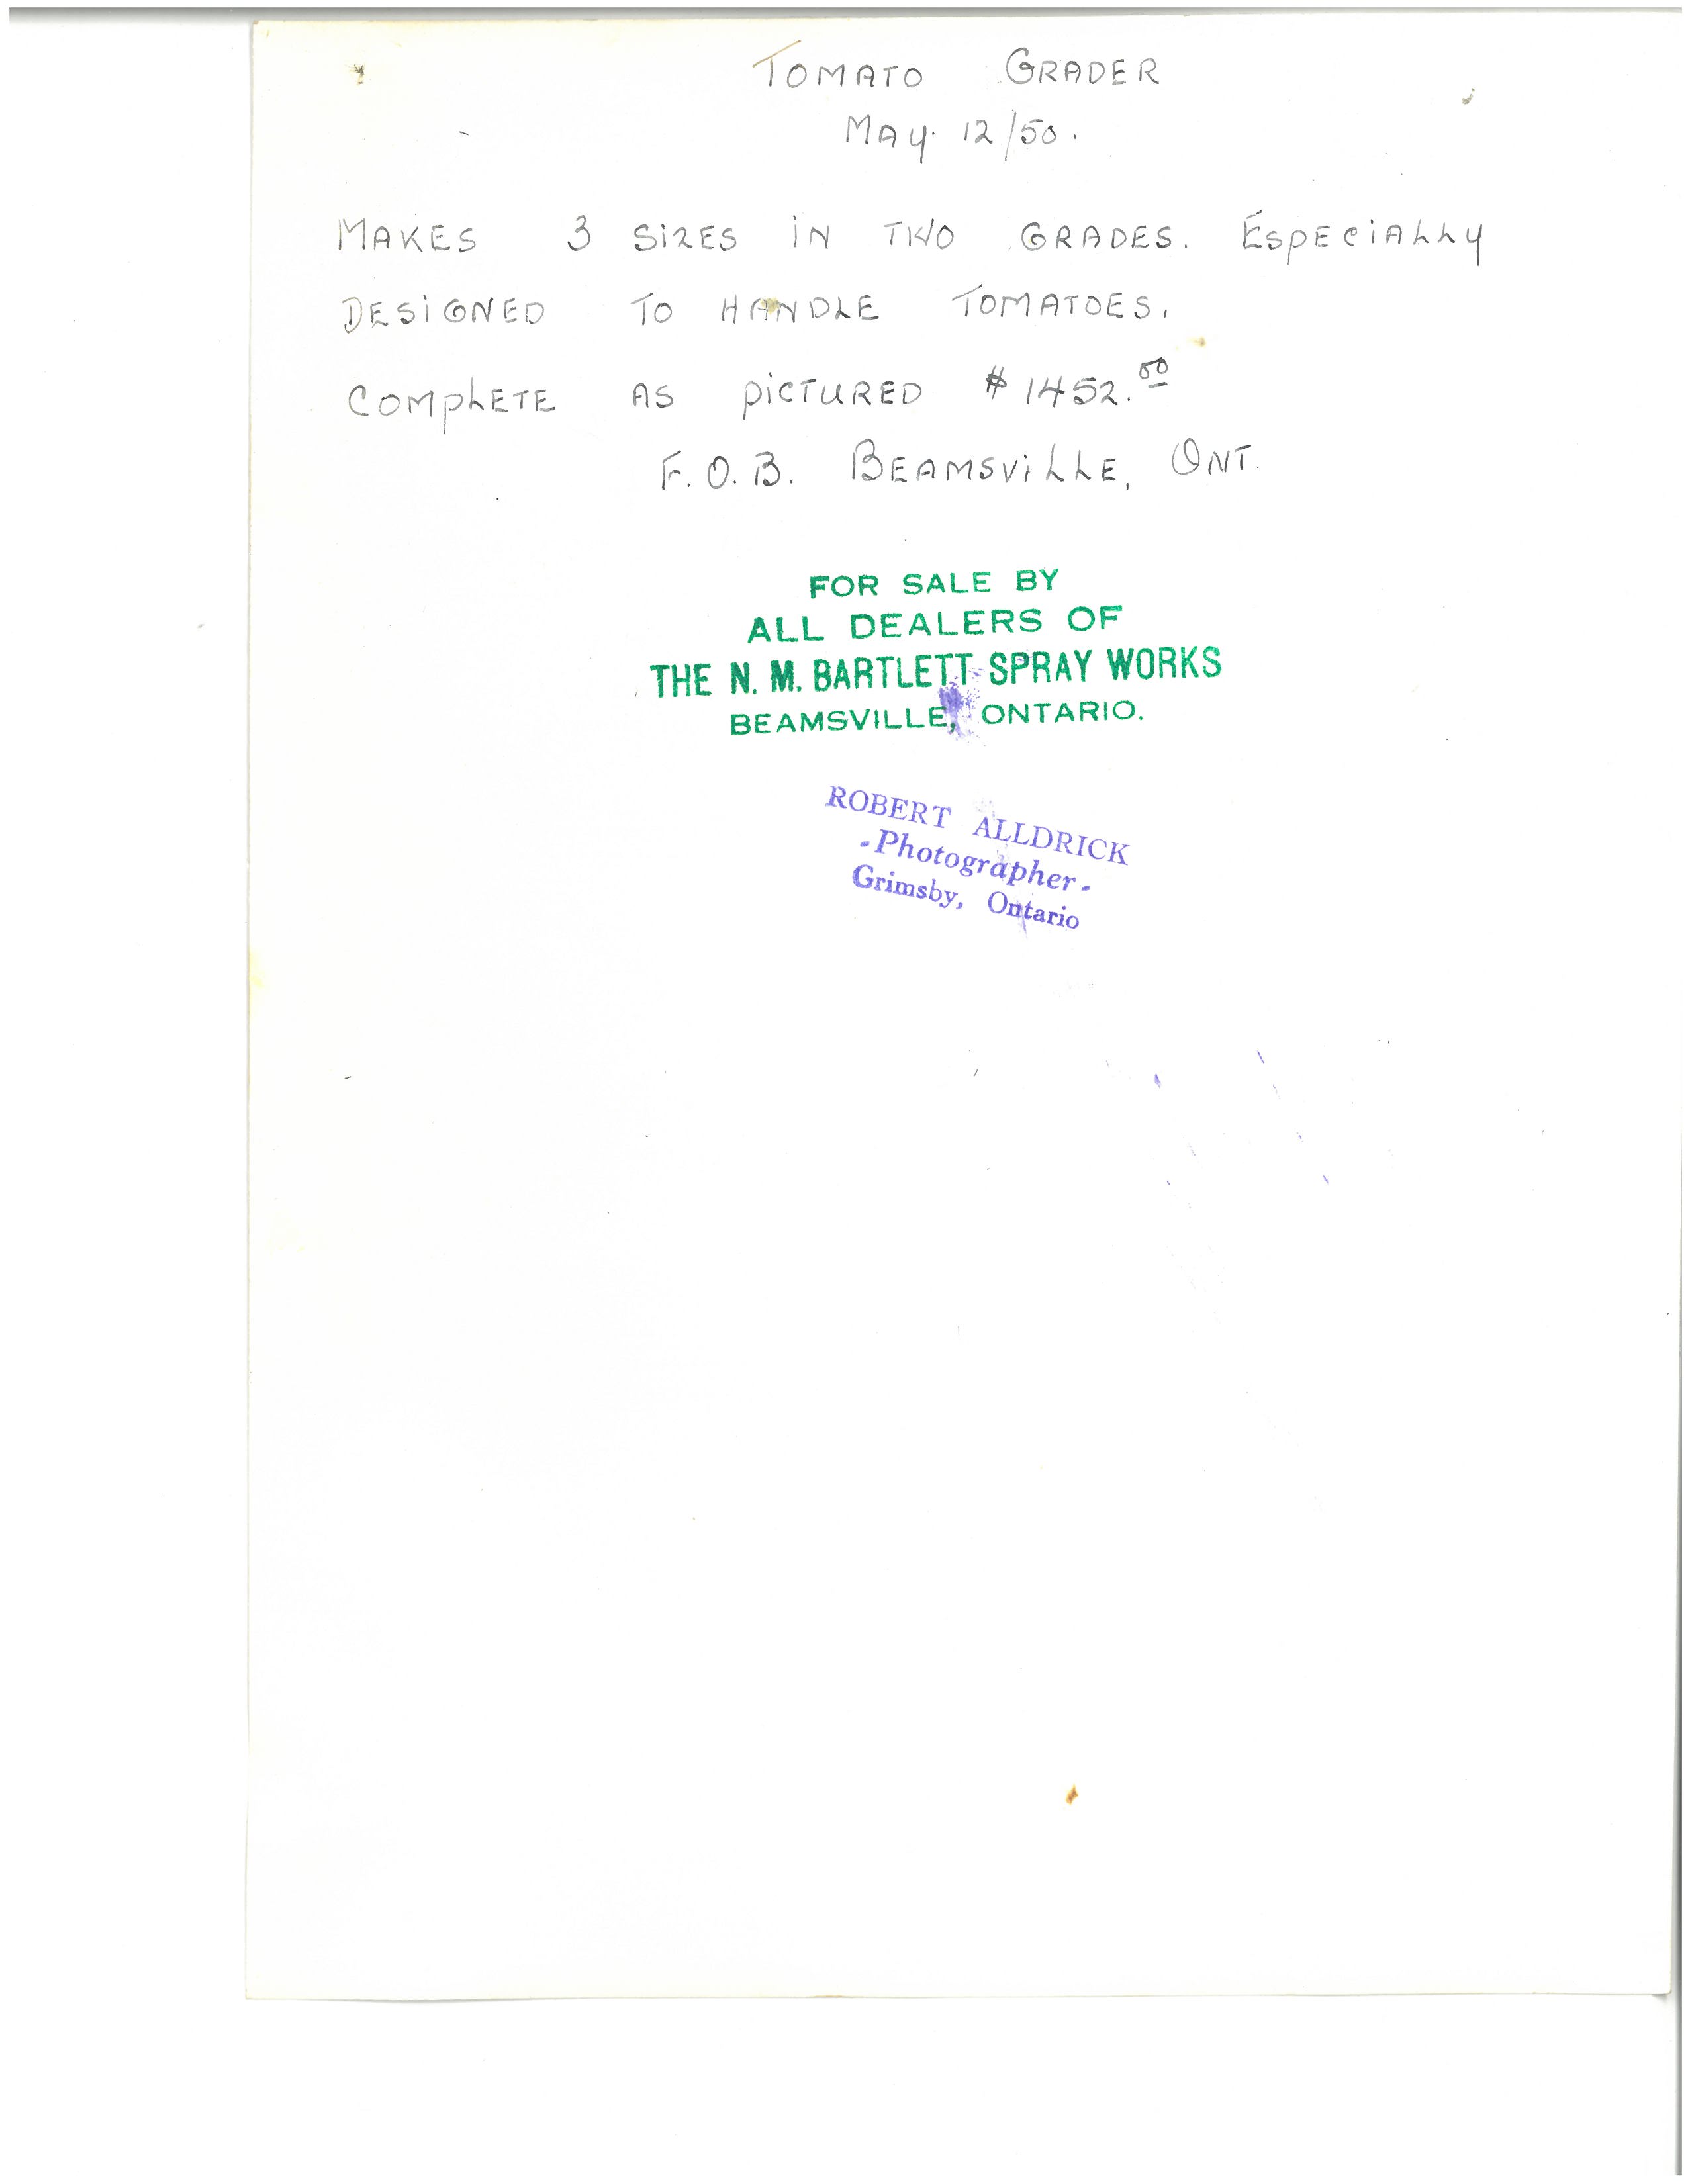 TOMATO GRADER
MAY. 12/50.
MAKES 3 SIZES IN TWO GRADES. ESPECIALLY
DESIGNED TO HANDLE TOMATOES.
COMPLETE AS PICTURED $1452.00
F.O.B. BEAMSVILLE, ONT.
FOR SALE BY
ALL DEALERS OF
THE N. M. BARTLETT SPRAY WORKS
BEAMSVILLE, ONTARIO.
ROBERT ALLDRICK
-Photographer-
Grimsby, Ontario